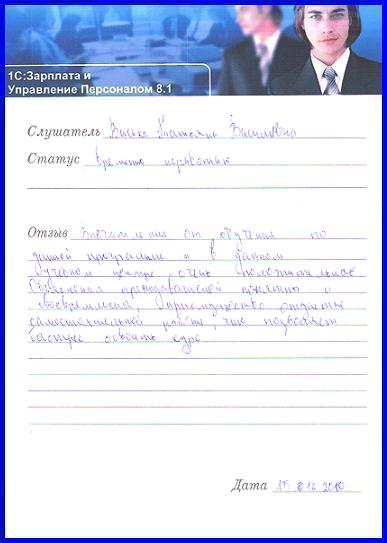 1С:Зарплата и
Управление Персоналом 8.1
Слушатель Васько Татьяна Васильевна
Статус временно неработаю
Отзыв Впечатления от обучения по
данной программе и в данном
учебном центре очень положительное
Объяснения преподавателей понятны и
своевременно, преимущество отдается
самостоятельной работе, что позволяет
быстрее освоить курс
Дата 15.12.2010